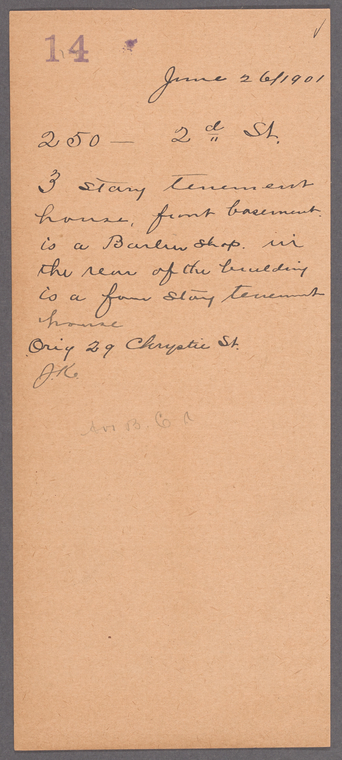 14
June 26/1901
250 — 2d St.
3 story tenement
house, front basement
is a Barber shop. in
the rear of the building
is a four story tenement
house
Orig 29 Chrystie St.
J.K.